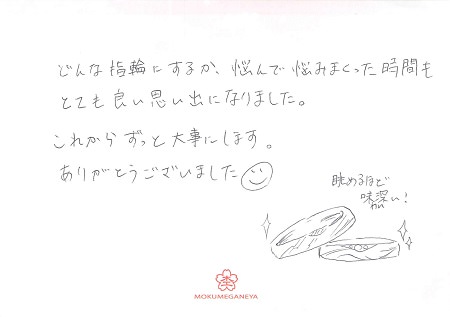 どんな指輪にするか、悩んで悩みまくった時間も
とても良い思い出になりました。
これからずっと大事にします。
ありがとうございました
眺めるほど
味深い!
MOKUMEGANEYA